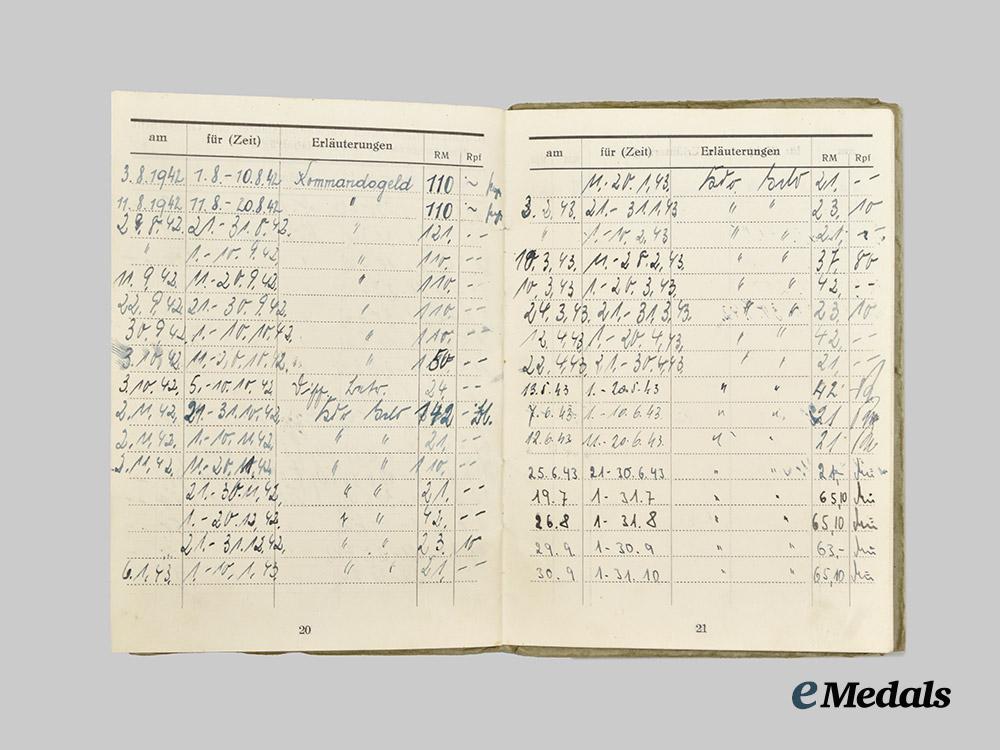 am für (Zeit) Erläuterungen RM Rpf
3.8.1942 1.8.-10.8.42 Kommandogeld 110
11.8.1942 11.8.-20.8.42 " 110
29.8.42. 21.-31.8.42. " 121. --
" 1.-10.9.42 " 110. --
11.9.42 11.-20.9.42 " 110. --
22.9.42 21.-30.9.42 " 110. --
30.9.42 1.-10.10.42. " 110. --
3.10.42 11.-20.10.42. " 150 --
3.10.42. 5.-10.10.42 Diff. 24. --
2.11.42. 21-31.10.42 Kdo 142 -
2.11.42. 1.-10.11.42 " " 21. --
2.11.42. 11.-20.11.42 " " 110. --
21.-30.11.42. " " 21. --
1.-20.12.42. " " 42. --
21.-31.12.42. " " 23. 10
6.1.43. 1.-10.1.43 " " 21. --
20
am für (Zeit) Erläuterungen RM Rpf
11.-20.1.43. Kdo 21. --
3.2.43. 21.-31.1.43 " " 23. 10
" 1.-10.2.43 " " 21.
10.3.43. 11.-28.2.43. " " 37. 80
10.3.43 1.-20.3.43. " " 42. --
24.3.43. 21.-31.3.43. " " 23. 10
12.4.43 1.-20.4.43. " " 42. --
22.4.43 21.-30.4.43. " " 21. --
13.5.43 1.-20.5.43 " " 42.
7.6.43. 1.-10.6.43 " " 21
12.6.43 11.-20.6.43 " " 21
25.6.43 21-30.6.43 " " 21.-
19.7 1-31.7 " " 65,10
26.8 1-31.8 " " 65,10
29.9 1-30.9 " " 63.-
30.9 1-31.10 " " 65,10
21
eMedals